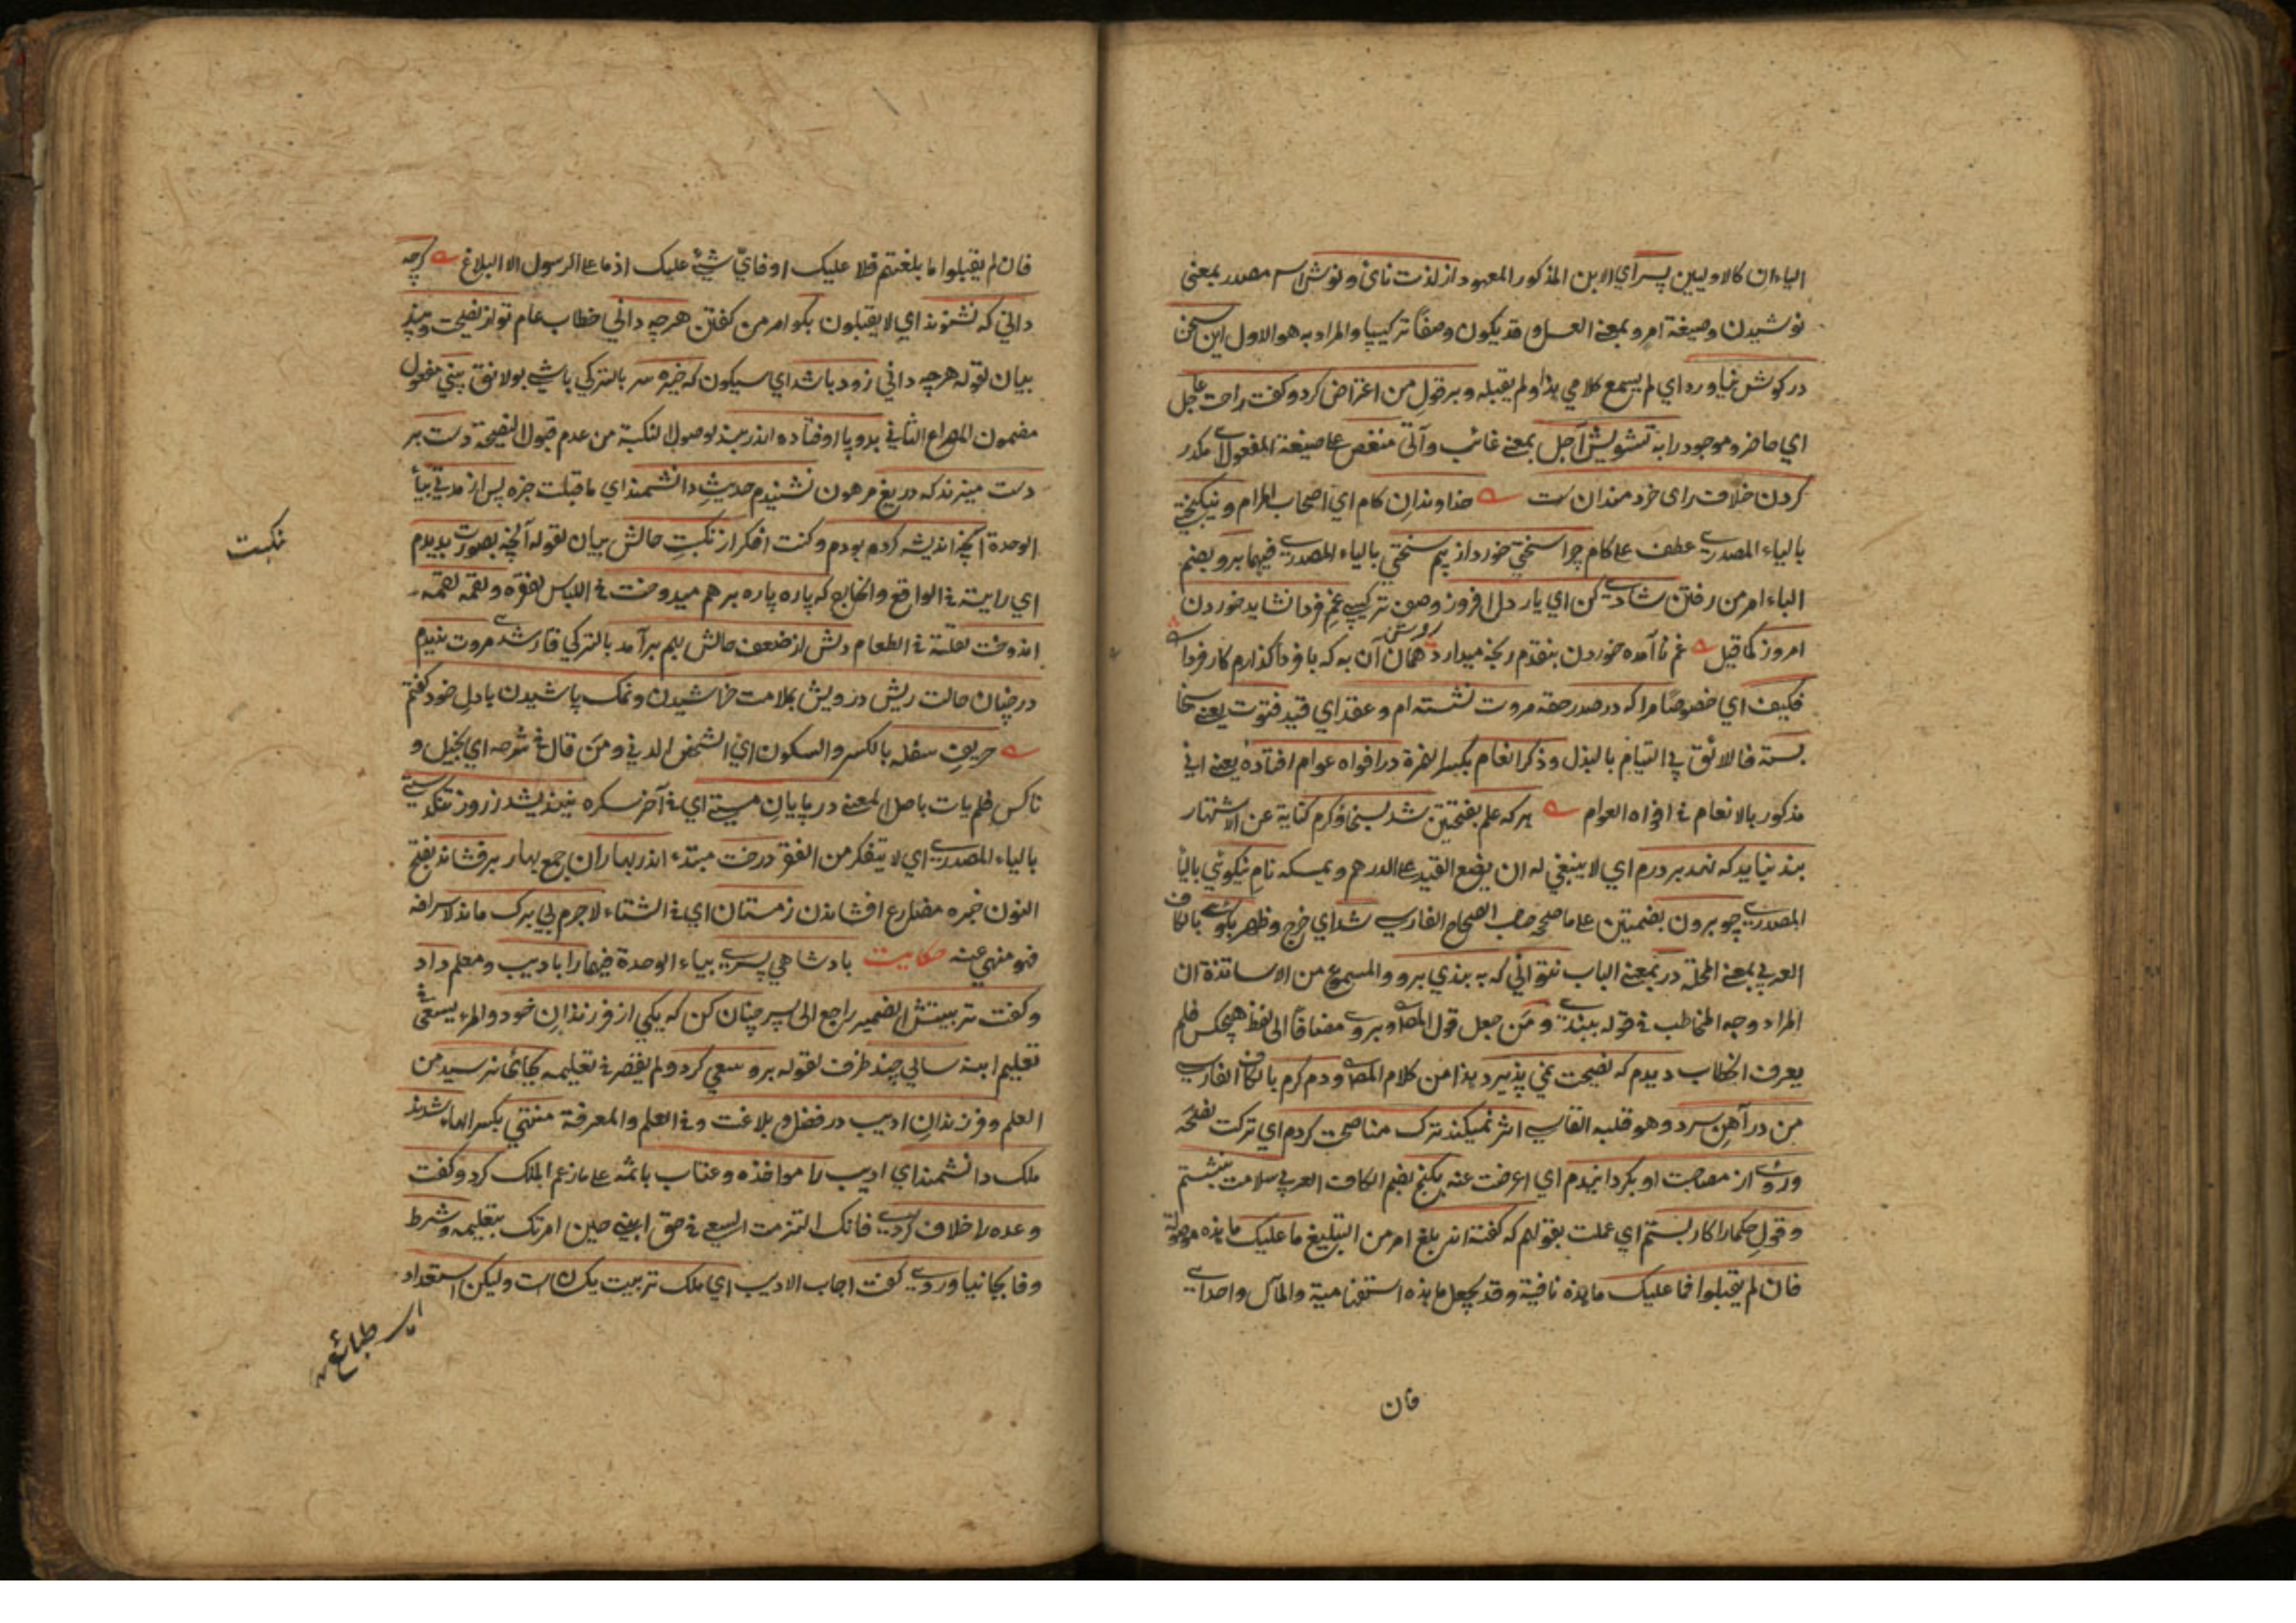 الياءان كالاوليين پسر اي الابن المذكور المعهود از لذت ناي ونوش اسم مصدر بمعنى
نوشيدن وصيغة امر و بمعنى العسل و قد يكون وصفا تركيبيا والمراد به هو الاول اين سخن
در كوش نياورد اي لم يسمع كلامي هذا ولم يقبله و بر قول من اعتراض كرد و كفت راحت عاجل
اي حاضر و موجود را به تشويش آجل بمعنى غائب وآتى منغص على صيغة المفعول اى مكدر
كردن خلاف راى خردمندان ست خداوندان كام اي اصحاب المرام و نيكبختى
بالياء المصدرى عطف على كام چرا سختي خورد از بيم سختي بالياء المصدرى فيهما برو بضم
الباء امر من رفتن شادى كن اي يار دل افروز وصف تركيبى غم فردا نشايد خوردن
امروز كما قيل غم نا آمده خوردن بنقدم رنجه ميدارد همان آن به كه با فردا كذارم كار فردا
فكيف اي خصوصا مرا كه در صدر صفه مروت نشسته ام و عقد اي قيد فتوت يعنى سخا
بسته فالائق بي القيام بالبذل و ذكر انعام بكسر الهمزة در افواه عوام افتاده يعنى اني
مذكور بالانعام في افواه العوام هر كه علم بفتحتين شد بسخا و كرم كناية عن الاشتهار
بند نبايد كه نهد بر درم اي لا ينبغي له ان يضع القيد على الدرهم و يمسكه نام نيكوئي بالياء
المصدرى چو برون بضمتين على ما صححه صاحب الصحاح الفارسى شد اي خرج وظهر بكوى بالكاف
العربي بمعنى المحلة در بمعنى الباب نتواني كه به بندي برو والمسموع من الاساتذة ان
المراد وجه المخاطب في قوله ببندى و من جعل قول المص و بروى مضافا الى لفظ هيچكس فلم
يعرف الخطاب ديدم كه نصيحت نمي پذيرد هذا من كلام المص ودم كرم بالكاف الفارسى
من در آهن سرد وهو قلبه القاسى اثر نميكند ترك مناصحت كردم اي تركت نصحه
و روى از مصاحبت او بكردانيدم اي اعرضت عنه بكنج بضم الكاف العربي سلامت بنشستم
و قول حكما را كار بستم اي عملت بقولهم كه كفته اند بلغ امر من التبليغ ما عليك ما هذه موصولة
فان لم يقبلوا فما عليك ما هذه نافية وقد يجعل ما هذه استفهامية والمآل واحد اى
فان
فان لم يقبلوا ما بلغتم فلا عليك او فاي شيء عليك اذ ما على الرسول الا البلاغ كرچه
داني كه نشنوند اي لا يقبلون بكو امر من كفتن هر چه داني خطاب عام تو از نصيحت و پند
بيان لقوله هر چه داني زود باشد اي سيكون كه خيره سر بالتركي باشى بولانق بيني مفعول
مضمون المصراع الثاني بدو پا اوفتاده اندر بند لوصول النكبة من عدم قبول النصيحة دست بر
دست ميزند كه دريغ مرهون نشنيدم حديث دانشمند اي ما قبلت خبره پس از مدتى بياء
الوحدة آنچه انديشه كردم بودم وكنت افكر از نكبت حالش بيان لقوله آنچه بصورت بديدم
نكبت
اي رايته في الواقع والخارج كه پاره پاره بر هم ميدوخت في اللباس لفقره ولقمه لقمه
اندوخت لقلته في الطعام دلش از ضعف حالش بهم برآمد بالتركي قارشدى مروت نديدم
در چنان حالت ريش درويش بملامت خراشيدن و نمك پاشيدن با دل خود كفتم
حريف سفله بالكسر والسكون اي الشخص الدني و من قال في شرحه اي البخيل و
ناكس فلم يات باصل المعنى در پايان مستى اي في آخر سكره نينديشد ز روز تنكدستى
بالياء المصدرى اي لا يتفكر من الفقر درخت مبتداء اندر بهاران جمع بهار بر فشاند بفتح
النون خبره مضارع افشاندن زمستان اي في الشتاء لاجرم بي برك ماند لاسرافه
فهو منهي عنه حكايت پادشاهي پسرى بياء الوحدة فيهما را باديب و معلم داد
و كفت تربيتش الضمير راجع الى پسر چنان كن كه يكي از فرزندان خود والمرء يسعى في
تعليم ابنه سالي چند ظرف لقوله برو سعي كرد ولم يقصر في تعليمه بجائى نرسيد من
العلم و فرزندان اديب در فضل و بلاغت و في العلم والمعرفة منتهي بكسر الهاء شدند
ملك دانشمند اي اديب را مواخذه و عتاب باثمه على ما زعم الملك كرد و كفت
وعده را خلاف كردى فانك التزمت السعى في حق ابنى حين امرتك بتعليمه و شرط
وفا بجا نياوردى كفت اجاب الاديب اي ملك تربيت يكسان ست وليكن استعداد
طبائع